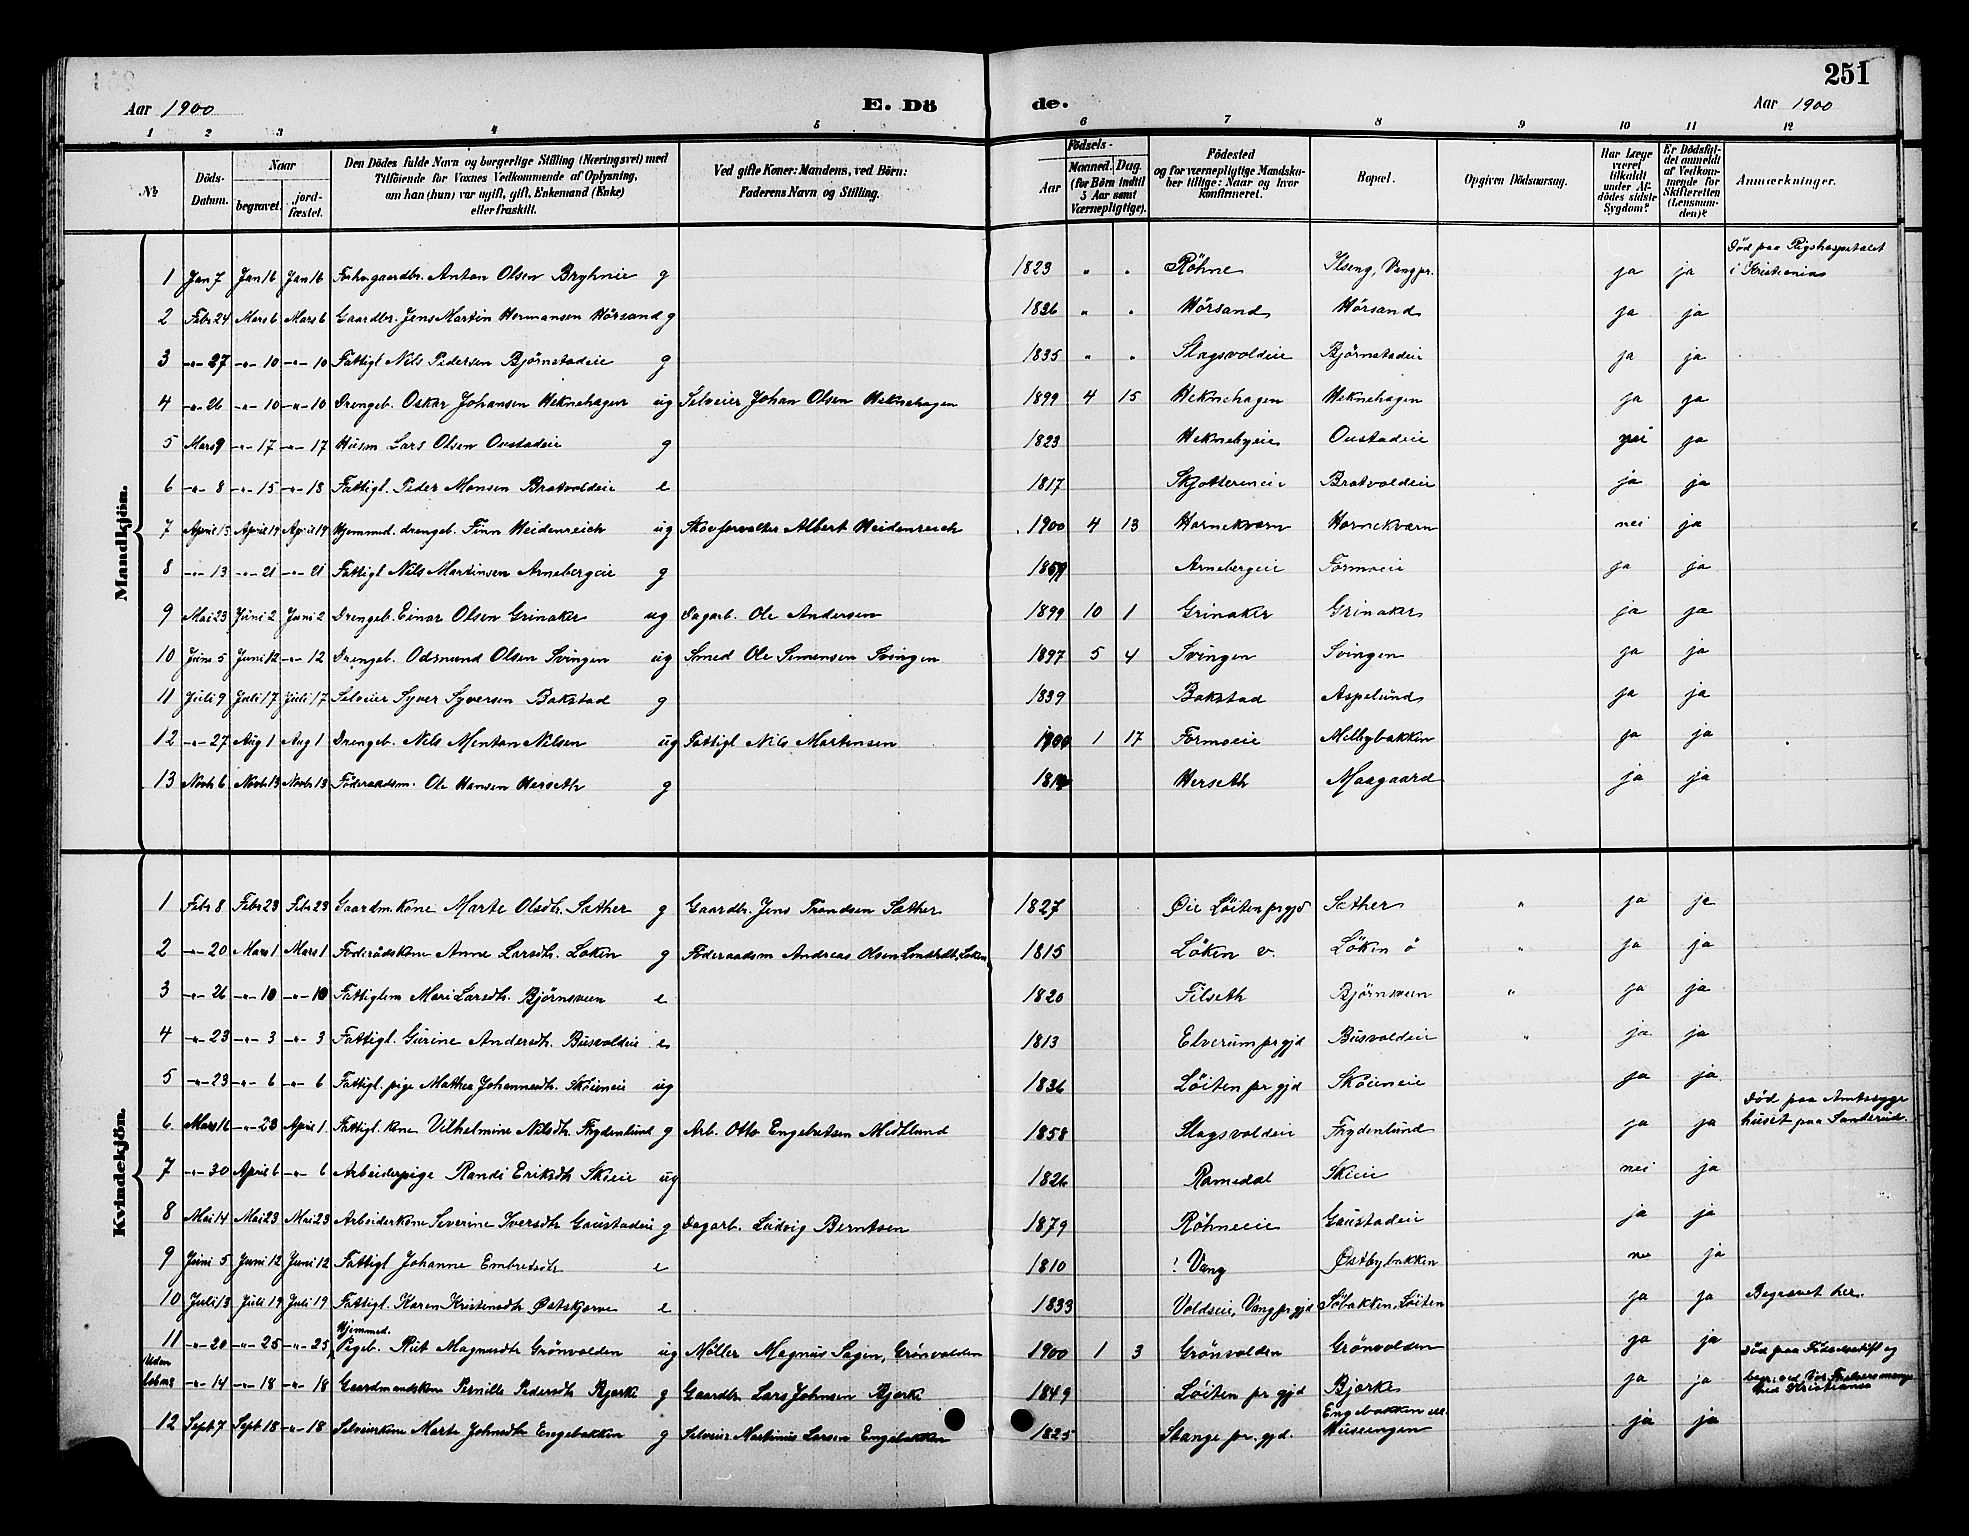 251
Aar 1900 E. Dö de. Aar 1900
1 2 3 4 5 6 7 8 9 10 11 12
№ Döds-Datum. Naar begravet. jordfæstet. Den Dödes fulde Navn og borgerlige Stilling (Næringsvei) med Tilföiende for Voxnes Vedkommende af Oplysning, om han (hun) var ugift, gift, Enkemand (Enke) eller fraskilt. Ved gifte Koner: Mandens, ved Börn: Faderens Navn og Stilling. Aar Födsels- Maaned. Dag. (for Börn indtil 5 Aar samt Værnepligtige). Födested og for værnepligtige Mandskaber tillige: Naar og hvor konfirmeret. Bopæl. Opgiven Dödsaarsag. Har Læge været tilkaldt under Afdödes sidste Sygdom? Er Dödsfaldet anmeldt af Vedkommende for Skifteretten (Lensmanden)? Anmærkninger.
Mandkjön.
1 Jan 7 Jan 16 Jan 16 Forh. gaardbr. Anton Olsen Bryhnie g 1823 " " Röhne Ilseng, Vang pr. ja ja Död paa Rigshospitalet i Kristiania
2 Febr 24 Mars 6 Mars 6 Gaardbr. Jens Martin Hermansen Hörsand g 1836 " " Hörsand Hörsand ja ja
3 -"- 27 -"- 10 -"- 10 Fattigl Nils Pedersen Bjørnstadeie g 1835 " " Slagsvoldeie Björnstadeie ja ja
4 -"- 26 -"- 10 -"- 10 Drengeb. Oskar Johansen Heknehagen ug Selveier Johan Olsen Heknehagen 1899 4 15 Heknehagen Heknehagen ja ja
5 Mars 9 -"- 17 -"- 17 Husm Lars Olsen Oustadeie g 1823 Heknebyeie Oustadeie nei ja
6 -"- 8 -"- 15 -"- 18 Fattigl. Peder Monsen Bratvoldeie e 1817 Skjottereneie Bratvoldeie ja ja
7 April 13 April 19 April 19 Hjemmed. drengeb. Finn Heidenreich ug Skovforvalter Albert Heidenreich 1900 4 13 Hornekværn Hornekværn nei ja
8 -"- 13 -"- 21 -"- 21 Fattigl Nils Martinsen Arnebergeie g Arnebergeie Formoeie ja ja
9 Mai 23 Juni 2 Juni 2 Drengeb. Einar Olsen Grinaker ug Dagarb. Ole Andersen 1899 10 1 Grinaker Grinaker ja ja
10 Juni 5 Juni 12 -"- 12 Drengeb. Odmund Olsen Svingen ug Smed Ole Simensen Svingen 1897 5 4 Svingen Svingen ja ja
11 Juli 9 Juli 17 Juli 17 Selveier Syver Syversen Bakstad g 1839 Bakstad Aspelund ja ja
12 -"- 27 Aug 1 Aug 1 Drengeb. Nils Mentan Nilsen ug Fattigl Nils Martensen 1900 1 17 Formoeie Melbybakken ja ja
13 Novb 6 Novbr 13 Novbr 13 Föderaadsm. Ole Hansen Herseth g Herseth Maagaard ja ja
Kvindekjön.
1 Febr 8 Febr 23 Febr 23 Gaardm. kone Marte Olsdtr. Sæther g Gaardbr. Jens Trondsen Sæther 1827 Øie Löiten prgjd Sæther " ja ja
2 -"- 20 Mars 1 Mars 1 Foderådskone Anne Larsdtr. Løken g Föderaadsm Andreas Olsen Løken 1815 Löken v. Löken ö " ja ja
3 -"- 26 -"- 10 -"- 10 Fattiglem Mari Larsdtr. Bjørnsveen e 1820 Filseth Björnsveen " ja ja
4 -"- 23 -"- 3 -"- 3 Fattigl. Gurine Andersdtr. Busvoldeie e 1813 Elverum prgjd Busvoldeie " ja ja
5 -"- 23 -"- 6 -"- 6 Fattigl. pige Mathea Johannesdtr. Sköieneie ug 1836 Löiten pr gjd Sköieneie ja ja
6. Mars 16 -"- 23 April 1 Fattigl. kone Vilhelmine Nilsdtr. Frydenlund g Arb. Otto Engebretsen Midtlund 1858 Slagsvoldeie Frydenlund ja ja Död paa Amtssygehuset paa Sanderud.
7 -"- 30 April 6 -"- 6 Arbeiderpige Randi Eriksdtr Skieie ug 1826 Romedal Skieie nei ja
8 Mai 14 Mai 23 Mai 23 Arbeiderkone Severine Iversdtr Gaustadeie g Dagarb. Ludvig Berntsen 1879 Röhneeie Gaustadeie ja ja
9 Juni 5 Juni 12 Juni 12 Fattigl Johanne Embretsdtr e 1810 ! Vang Østbybakken nei ja
10 Juli 13 Juli 19 Juli 19 Fattigl. Karen Kristensdtr Østskjørve e 1833 Voldseie, Vang prgjd Söbakken, Löiten ja ja Begravet her.
11 -"- 20 -"- 25 -"- 25 Hjemmed. Pigeb. Rut Magnusdtr Grönvolden ug Møller Magnus Sagen, Grönvolden 1900 1 3 Grönvolden Grönvolden ja ja
Uden No -"- 14 -"- 18 -"- 18 Gaardmandskone Pernille Pedersdtr Bjørke g Gaardbr. Lars Johnsen Bjørke 1849 Löiten pr gjd Bjørke ja ja Död paa begr. ved Vor Frelsers menigh. Kristiania
12 Sept 7 Sept 18 -"- 18 Selveierkone Marte Johnsdtr Engebakken g Selveier Martinius Larsen Engebakken 1825 Stange pr. gjd. Engebakken Husengen ja ja